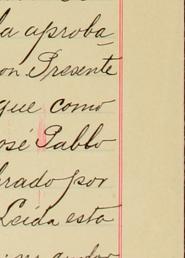 la aproba-
on Presente
que como
osé Pablo
brado por
Leida esta